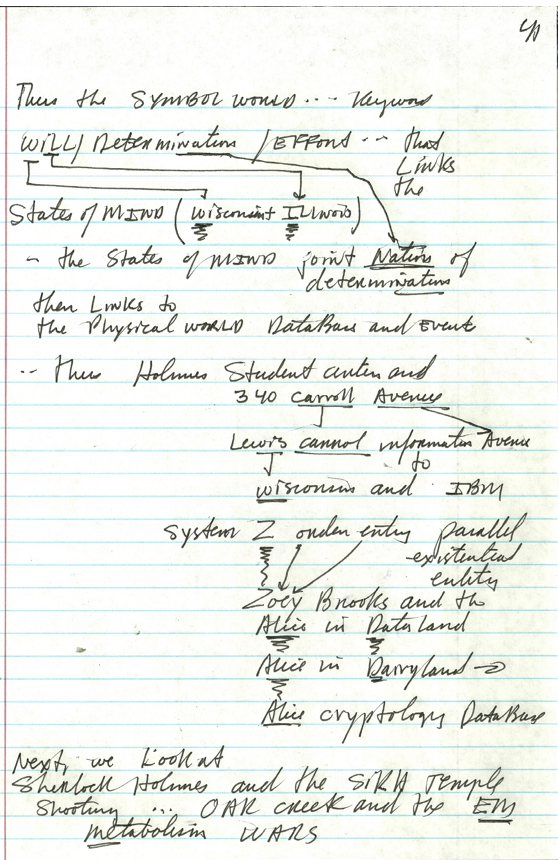 40
Thus the SYMBOL WORLD ... Keyword
WILL / Determination / EFFORT ... that
Links
the
States of MIND (wisconsin + ILLINOIS)
- the States of MIND joint Nation of
determination
then Links to
the Physical WORLD DataBase and Event
... Thus Holmes Student enters and
340 Carroll Avenue
Lewis Carrol information Avenue
to
wisconsin and IBM
System Z order entry parallel
-existential
entity
Zoey Brooks and the
Alice in Dataland
Alice in Dairyland →
Alice cryptology DataBase
Next, we Look at
Sherlock Holmes and the SIKH Temple
Shooting ... OAK creek and the EM
metabolism WARS